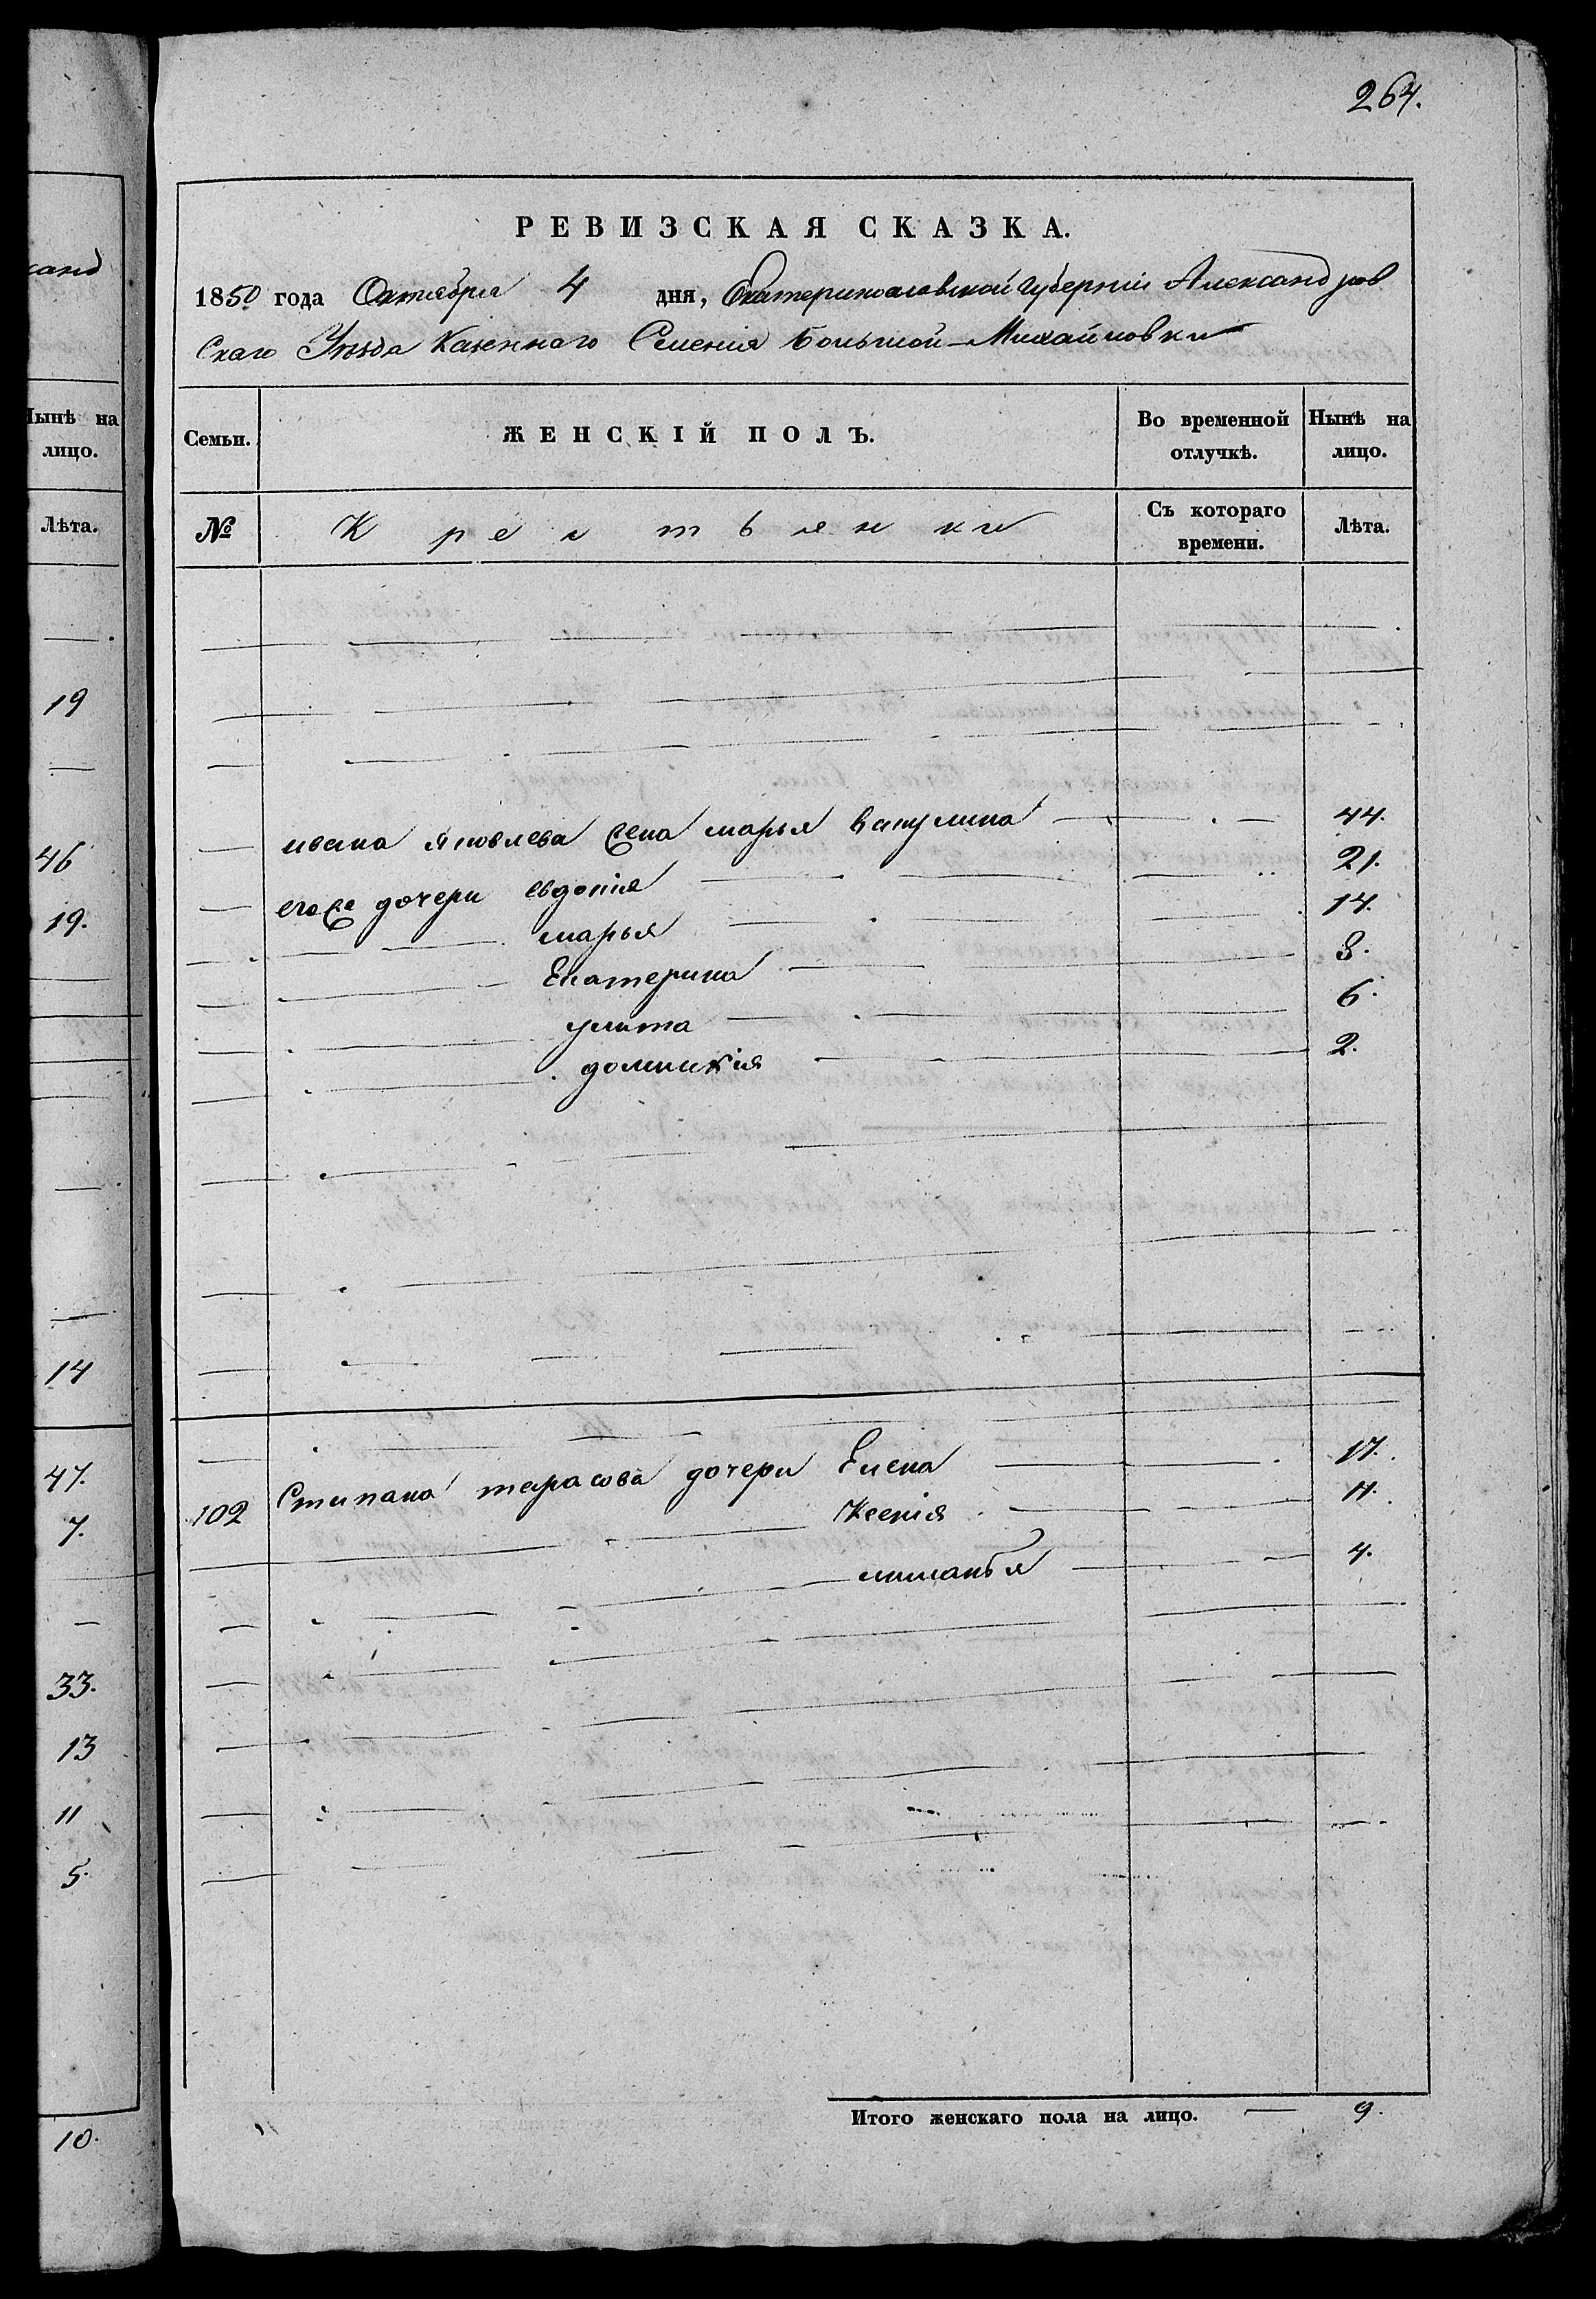 264.
РЕВИЗСКАЯ СКАЗКА.
1850 года Октября 4 дня, Екатеринославской губерніи Александров
Скаго Уѣзда Казеннаго Селенія Большой-Михайловки
Семьи.
ЖЕНСКІЙ ПОЛЪ.
Во временной отлучкѣ.
Нынѣ на лицо.
№
Крестьянки
Съ котораго времени.
Лѣта.
ивана Яковлева жена марья Викулина 44.
егоже дочери евдокія 21.
марья 14.
Екатерина 8.
улита 6.
домникія 2.
102 Степана тарасова дочери Елена 17.
Ксенія 11.
миланья 4.
Итого женскаго пола на лицо. 9.
санд
Нынѣ на
лицо.
Лѣта.
19
46
19.
14
47.
7.
33.
13
11
5.
10.